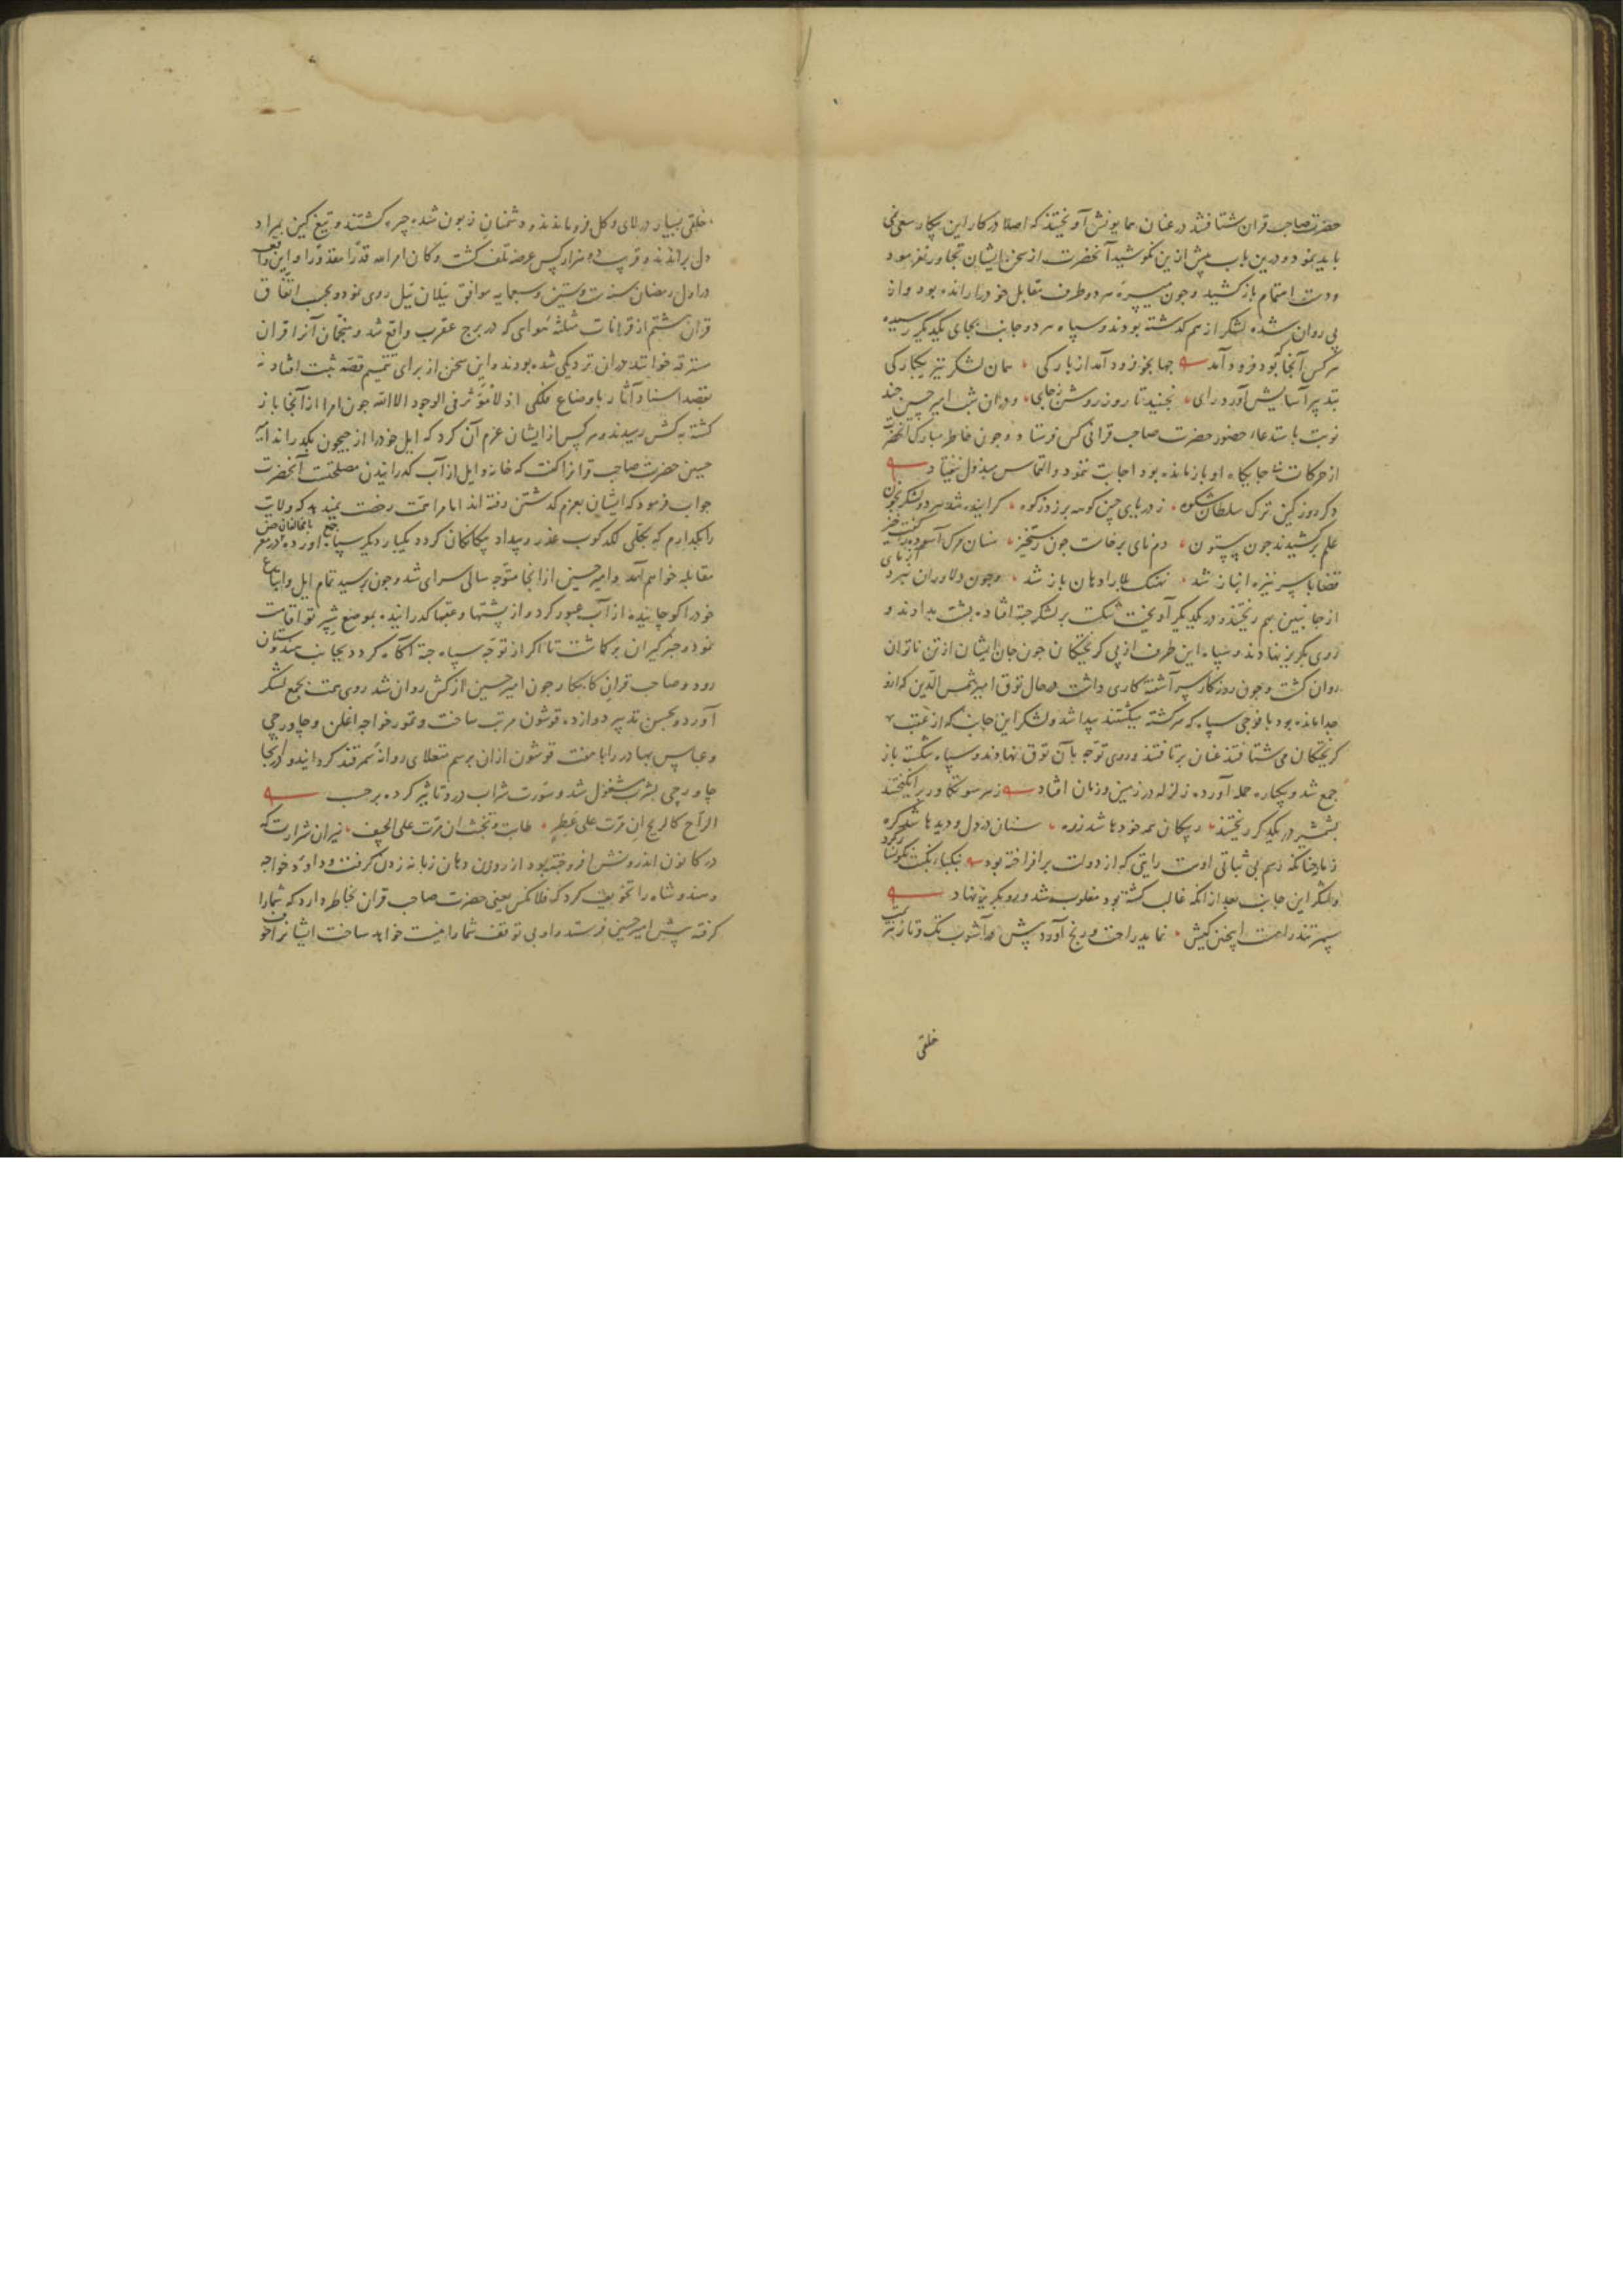 حضرت صاحب قران شتافتند در عنان همایونش آویختند که اصلا در کار این پیکار سعی نمی
باید نمود و درین باب پیش ازین نکوشید آنحضرت از سخن ایشان تجاوز نفرمود
ودست اهتمام باز کشید وجون میسره هر دو طرف مقابل خود را رانده بود واز
پی روان شده لشکر از هم کذشته بودند وسپاه هر دو جانب بجای یکدیکر رسیده
هرکس آنجا بود فرود آمد جهانجو فرود آمد از بارکی همان لشکر نیز یکبارکی
بتدبیر آسایش آورد رای نجنبید تا روز روشن زجای ودران شب امیر حسین چند
نوبت باستدعاء حضور حضرت صاحب قرانی کس فرستاد وجون خاطر مبارک آنحضرت
از حرکات جایکاه او باز مانده بود اجابت ننمود والتماس مبذول نیفتاد
دکر روز کین ترک سلطان شکوه ز دریای چین کوهه بر زد بکوه کراینده شد هر دو لشکر بخون
علم برکشیدند جون بیستون دم نای برخاست جون رستخیز سنان مرک آسوده را کفت خیز
قضا با سر نیزه انباز شد نهنک بلا را دهان باز شد وجون دلاوران نبرد آزمای
از جانبین بهم ریختند و در یکدیکر آویختند شکست بر لشکر جته افتاده پشت بدادند و
روی بکریز نهادند وسپاه این طرف از پی کریختکان جون جان ایشان از تن ناتوان
روان کشت وجون روزکار سر آشفته کاری داشت در حال توق امیر شمس الدین که ازو
جدا مانده بود با فوجی سپاه که سرکشته میکشتند پیدا شد ولشکر این جانب که از عقب
کریختکان می شتافتند عنان بر تافتند وروی توجه بآن توق نهادند وسپاه شکسته باز
جمع شد ویکباره حمله آورده زلزله در زمین وزمان افتاد ز هر سو تکاور برانکیختند
بشمشیر در یکدکر ریختند ز پیکان همه خودها شد زره سنان در دل و دیدها شد کره
زمانه جنانکه رسم بی ثباتی اوست رایتی که از دولت بر افراخته بود بیکبار نکبت نکونسار کرد
ولشکر این جانب بعد از انکه غالب کشته بود مغلوب شد ورو بکریز نهاد
سپهر تند را هست اینچنین کیش نماید راحت ورنج آورد پیش
خلقی
خلقی بسیار در لای وکل فرو ماندند ودشمنان زبون شده چیره کشتند و تیغ کین بمراد
دل براندند و قریب ده هزار کس عرضه تلف کشت وکان امر الله قدرا مقدورا واین واقعه
در اول رمضان سنه ست وستین وسبعمایه موافق ییلان ییل روی نمود وبحسب اتفاق
قران هشتم از قرانات مثلثه هوای که در برج عقرب واقع شد ومنجمان آنرا قران
خوانند دران نزدیکی شده بودند واین سخن از برای تتمیم قصه ثبت افتاد نه
بقصد اسناد آثار باوضاع فلکی اذ لا مؤثر فی الوجود الا الله جون امرا از آنجا باز
کشته به کش رسیدند وهر کس از ایشان عزم آن کرد که ایل خود را از جیحون بکذراند امیر
حسین حضرت صاحب قرانرا کفت که خانه وایل از آب کذرانیدن مصلحتست آنحضرت
جواب فرمود که ایشان بعزم کذشتن رفته اند اما مرا همت رخصت نمیدهد که ولایت
را بکذارم که بکلی لکدکوب غدر وبیداد بیکانکان کردد یکبار دیکر سپاه جمع آورده با مخالفان در معرض
مقابله خواهم آمد وامیر حسین از آنجا متوجه سالی سرای شد وجون برسید تمام ایل واتباع
خود را کوچانیده از آب عبور کرد واز پشتها وعقبها کذرانیده بموضع شبرتو اقامت
نمود وخبرکیران برکماشت تا اکر از توجه سپاه جته آکاه کردد بجانب هندوستان
رود وصاحب قران کامکار جون امیر حسین از کش روان شد روی همت بجمع لشکر
آورد وبحسن تدبیر دوازده قوشون مرتب ساخت وتمور خواجه اغلن و جاورجی
وعباس بهادر را با هفت قوشون ازان برسم منغلای روانه سمرقند کردانید ودر انجا
جاورجی بشرب مشغول شد وسورت شراب درو تاثیر کرده بر حسب
الراح کالریح ان مرت علی عطر طابت وتخبث ان مرت علی الجیف نیران شرارت که
در کانون اندرونش افروخته بود از روزن دهان زبانه زدن کرفت وداود خواجه
وهندوشاه را تخویف کرد که فلانکس یعنی حضرت صاحب قران بخاطر دارد که شما را
کرفته پیش امیر حسین فرستد واو بی توقف شما را نیست خواهد ساخت ایشانرا خوف